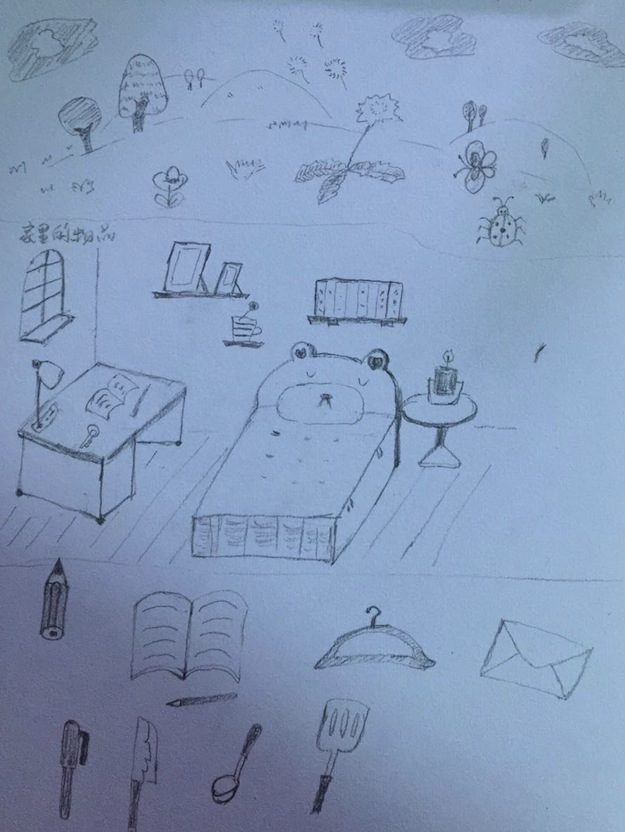 家里的物品